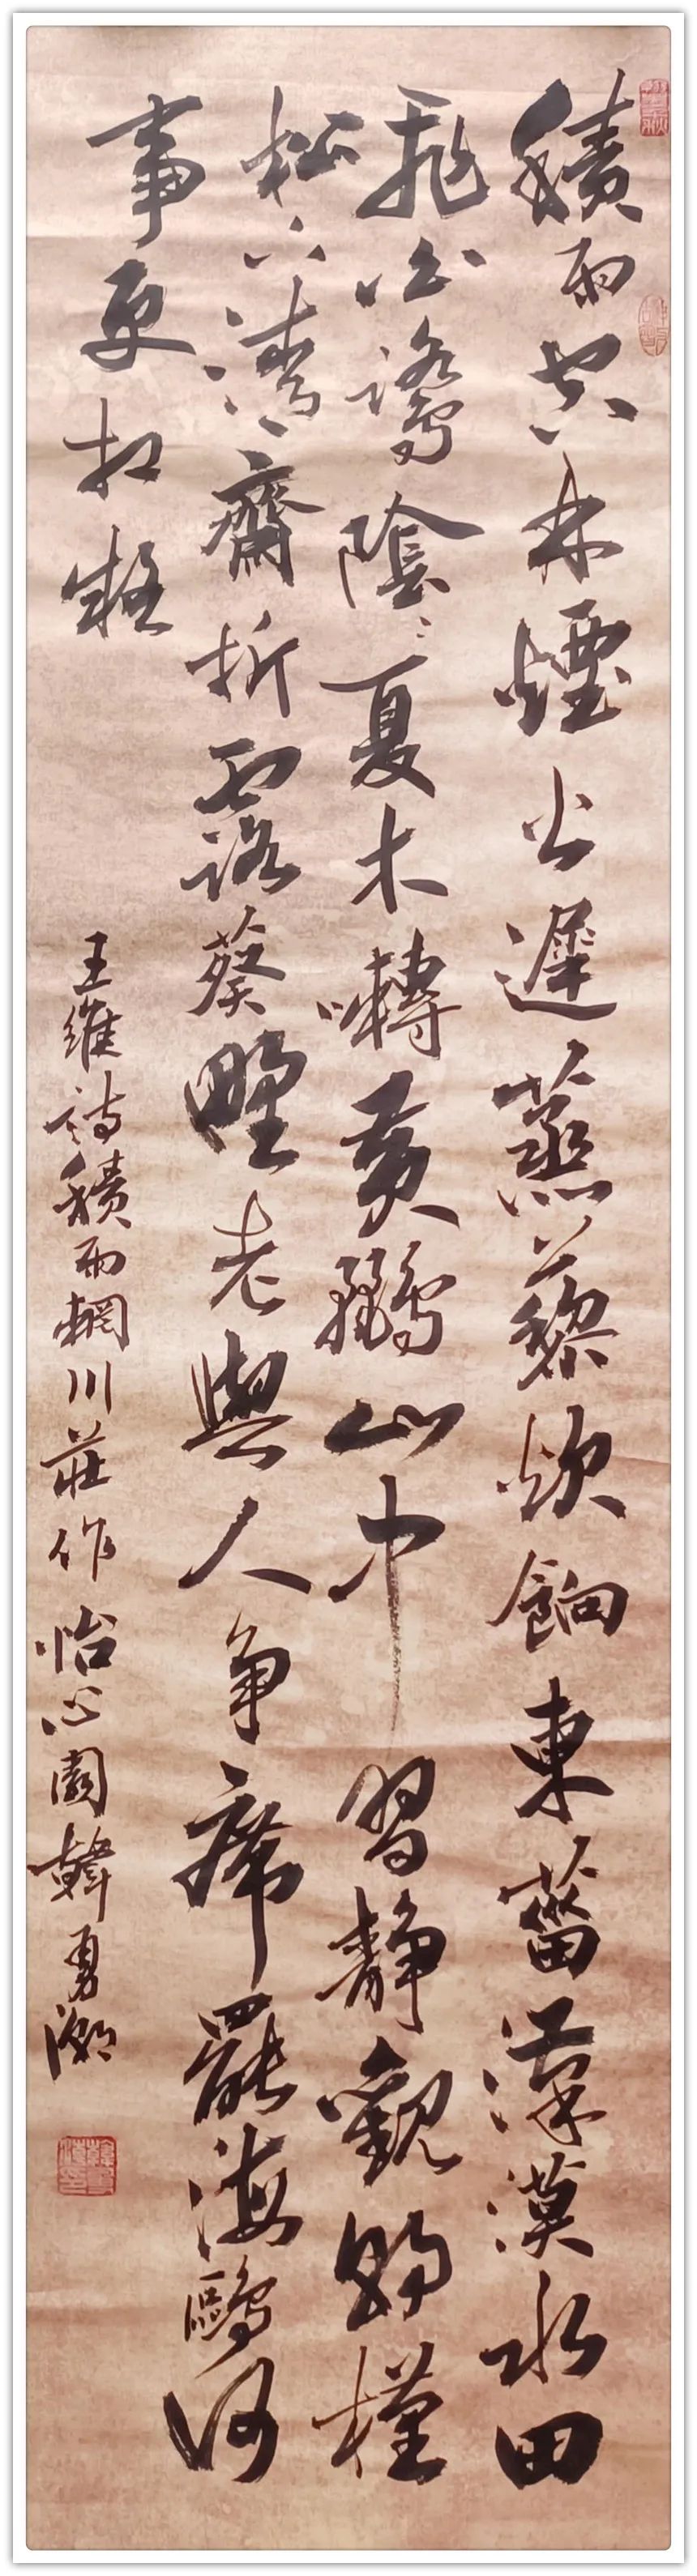 積雨空林煙火遲蒸藜炊餉東菑漠漠水田
飛白鷺陰〻夏木囀黃鸝山中習靜觀朝槿
松下清齋折露葵野老與人争席罷海鷗何
事更相疑
王維詩積雨輞川莊作怡心園韓勇